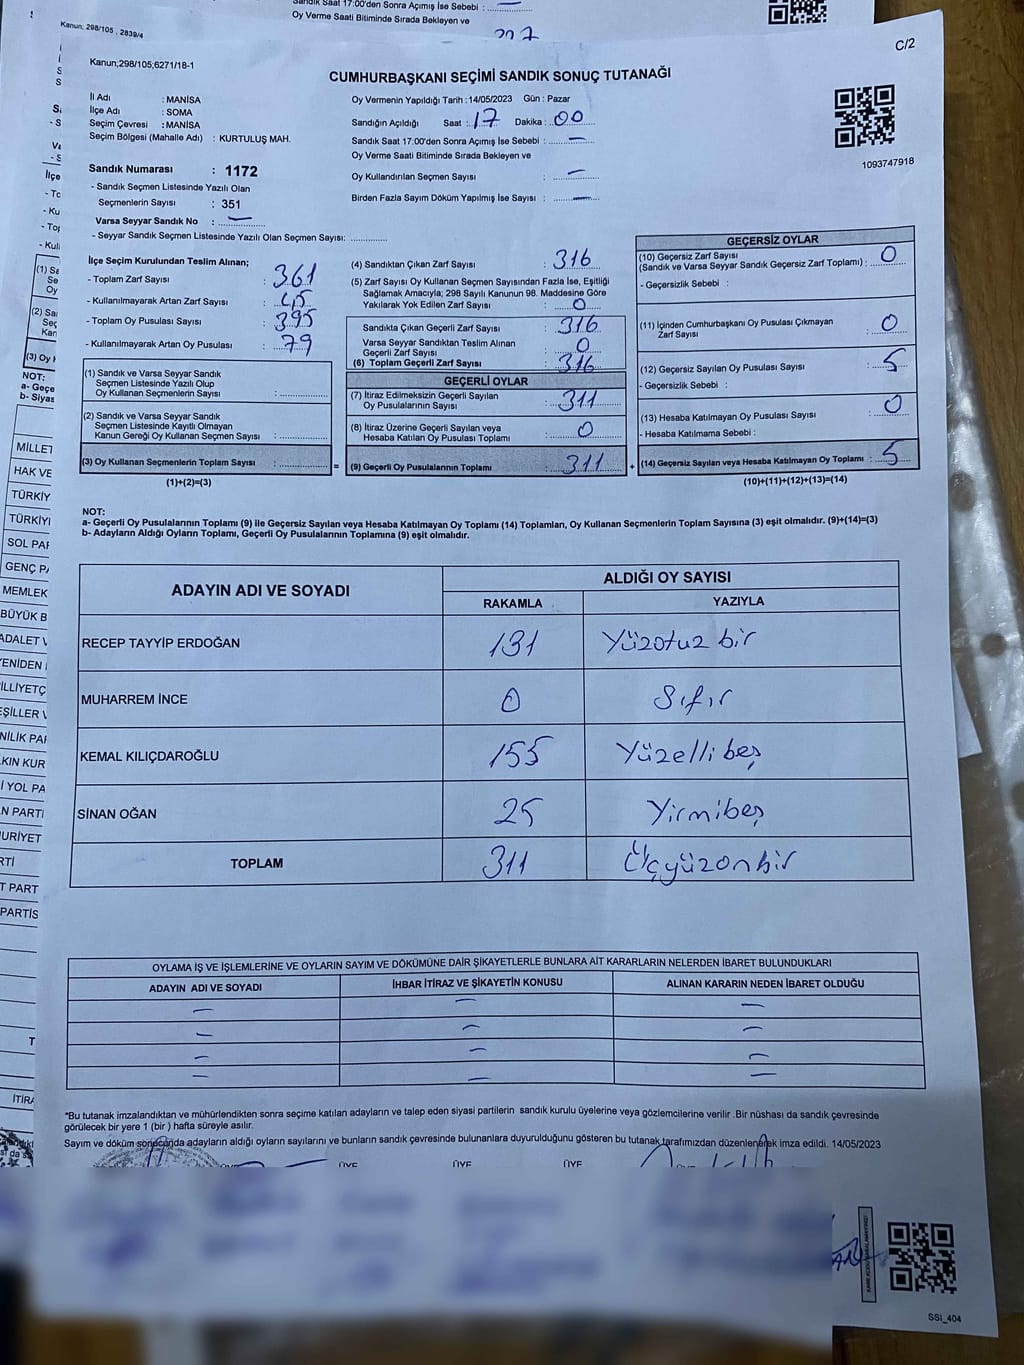 Sandık Saat 17:00'den Sonra Açımış İse Sebebi :
Oy Verme Saati Bitiminde Sırada Bekleyen ve
Kanun; 298/105 , 2839/4
C/2
Kanun;298/105,6271/18-1
CUMHURBAŞKANI SEÇİMİ SANDIK SONUÇ TUTANAĞI
İl Adı : MANİSA
İlçe Adı : SOMA
Seçim Çevresi : MANİSA
Seçim Bölgesi (Mahalle Adı) : KURTULUŞ MAH.
Oy Vermenin Yapıldığı Tarih :14/05/2023 Gün : Pazar
Sandığın Açıldığı Saat : 17 Dakika : 00
Sandık Saat 17:00'den Sonra Açımış İse Sebebi : —
Oy Verme Saati Bitiminde Sırada Bekleyen ve
Oy Kullandırılan Seçmen Sayısı : —
Birden Fazla Sayım Döküm Yapılmış İse Sayısı : —
1093747918
Sandık Numarası : 1172
- Sandık Seçmen Listesinde Yazılı Olan
Seçmenlerin Sayısı : 351
Varsa Seyyar Sandık No : —
- Seyyar Sandık Seçmen Listesinde Yazılı Olan Seçmen Sayısı:
İlçe Seçim Kurulundan Teslim Alınan;
- Toplam Zarf Sayısı : 361
- Kullanılmayarak Artan Zarf Sayısı : 45
- Toplam Oy Pusulası Sayısı : 395
- Kullanılmayarak Artan Oy Pusulası : 79
(1) Sandık ve Varsa Seyyar Sandık
Seçmen Listesinde Yazılı Olup
Oy Kullanan Seçmenlerin Sayısı :
(2) Sandık ve Varsa Seyyar Sandık
Seçmen Listesinde Kayıtlı Olmayan
Kanun Gereği Oy Kullanan Seçmen Sayısı :
(3) Oy Kullanan Seçmenlerin Toplam Sayısı :
(1)+(2)=(3)
=
(4) Sandıktan Çıkan Zarf Sayısı : 316
(5) Zarf Sayısı Oy Kullanan Seçmen Sayısından Fazla İse, Eşitliği
Sağlamak Amacıyla; 298 Sayılı Kanunun 98. Maddesine Göre
Yakılarak Yok Edilen Zarf Sayısı : 0
Sandıkta Çıkan Geçerli Zarf Sayısı : 316
Varsa Seyyar Sandıktan Teslim Alınan
Geçerli Zarf Sayısı : 0
(6) Toplam Geçerli Zarf Sayısı : 316
GEÇERLİ OYLAR
(7) İtiraz Edilmeksizin Geçerli Sayılan
Oy Pusulalarının Sayısı : 311
(8) İtiraz Üzerine Geçerli Sayılan veya
Hesaba Katılan Oy Pusulası Toplamı : 0
(9) Geçerli Oy Pusulalarının Toplamı : 311
+
GEÇERSİZ OYLAR
(10) Geçersiz Zarf Sayısı
(Sandık ve Varsa Seyyar Sandık Geçersiz Zarf Toplamı) : 0
- Geçersizlik Sebebi :
(11) İçinden Cumhurbaşkanı Oy Pusulası Çıkmayan
Zarf Sayısı : 0
(12) Geçersiz Sayılan Oy Pusulası Sayısı : 5
- Geçersizlik Sebebi :
(13) Hesaba Katılmayan Oy Pusulası Sayısı : 0
- Hesaba Katılmama Sebebi :
(14) Geçersiz Sayılan veya Hesaba Katılmayan Oy Toplamı : 5
(10)+(11)+(12)+(13)=(14)
NOT:
a- Geçerli Oy Pusulalarının Toplamı (9) ile Geçersiz Sayılan veya Hesaba Katılmayan Oy Toplamı (14) Toplamları, Oy Kullanan Seçmenlerin Toplam Sayısına (3) eşit olmalıdır. (9)+(14)=(3)
b- Adayların Aldığı Oyların Toplamı, Geçerli Oy Pusulalarının Toplamına (9) eşit olmalıdır.
ADAYIN ADI VE SOYADI
ALDIĞI OY SAYISI
RAKAMLA YAZIYLA
RECEP TAYYİP ERDOĞAN 131 Yüzotuz bir
MUHARREM İNCE 0 Sıfır
KEMAL KILIÇDAROĞLU 155 Yüzelli beş
SİNAN OĞAN 25 Yirmibeş
TOPLAM 311 Üçyüzonbir
OYLAMA İŞ VE İŞLEMLERİNE VE OYLARIN SAYIM VE DÖKÜMÜNE DAİR ŞİKAYETLERLE BUNLARA AİT KARARLARIN NELERDEN İBARET BULUNDUKLARI
ADAYIN ADI VE SOYADI İHBAR İTİRAZ VE ŞİKAYETİN KONUSU ALINAN KARARIN NEDEN İBARET OLDUĞU
— — —
— — —
— — —
— — —
*Bu tutanak imzalandıktan ve mühürlendikten sonra seçime katılan adayların ve talep eden siyasi partilerin sandık kurulu üyelerine veya gözlemcilerine verilir .Bir nüshası da sandık çevresinde
görülecek bir yere 1 (bir ) hafta süreyle asılır.
Sayım ve döküm sonucunda adayların aldığı oyların sayılarını ve bunların sandık çevresinde bulunanlara duyurulduğunu gösteren bu tutanak tarafımızdan düzenlenerek imza edildi. 14/05/2023
ÜYE ÜYE ÜYE
SSI_404